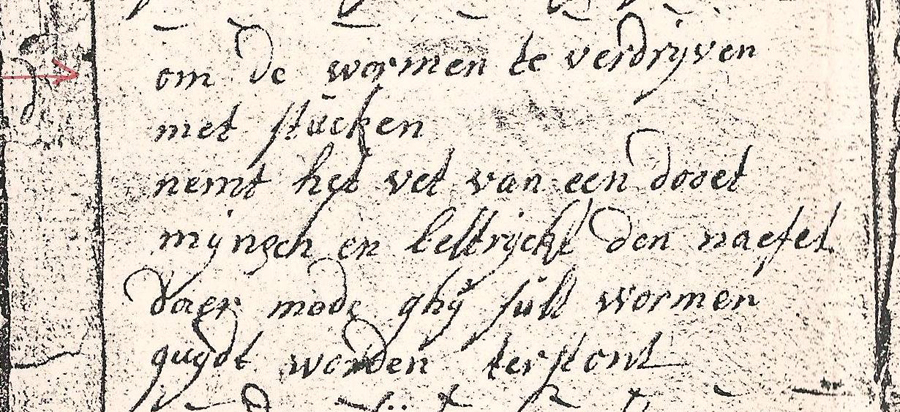 om de wormen te verdrijven
met stucken
nemt het vet van een dooet
mijnsch en bestrijckt den naefel
daer mede ghij sult wormen
quijdt worden terstont